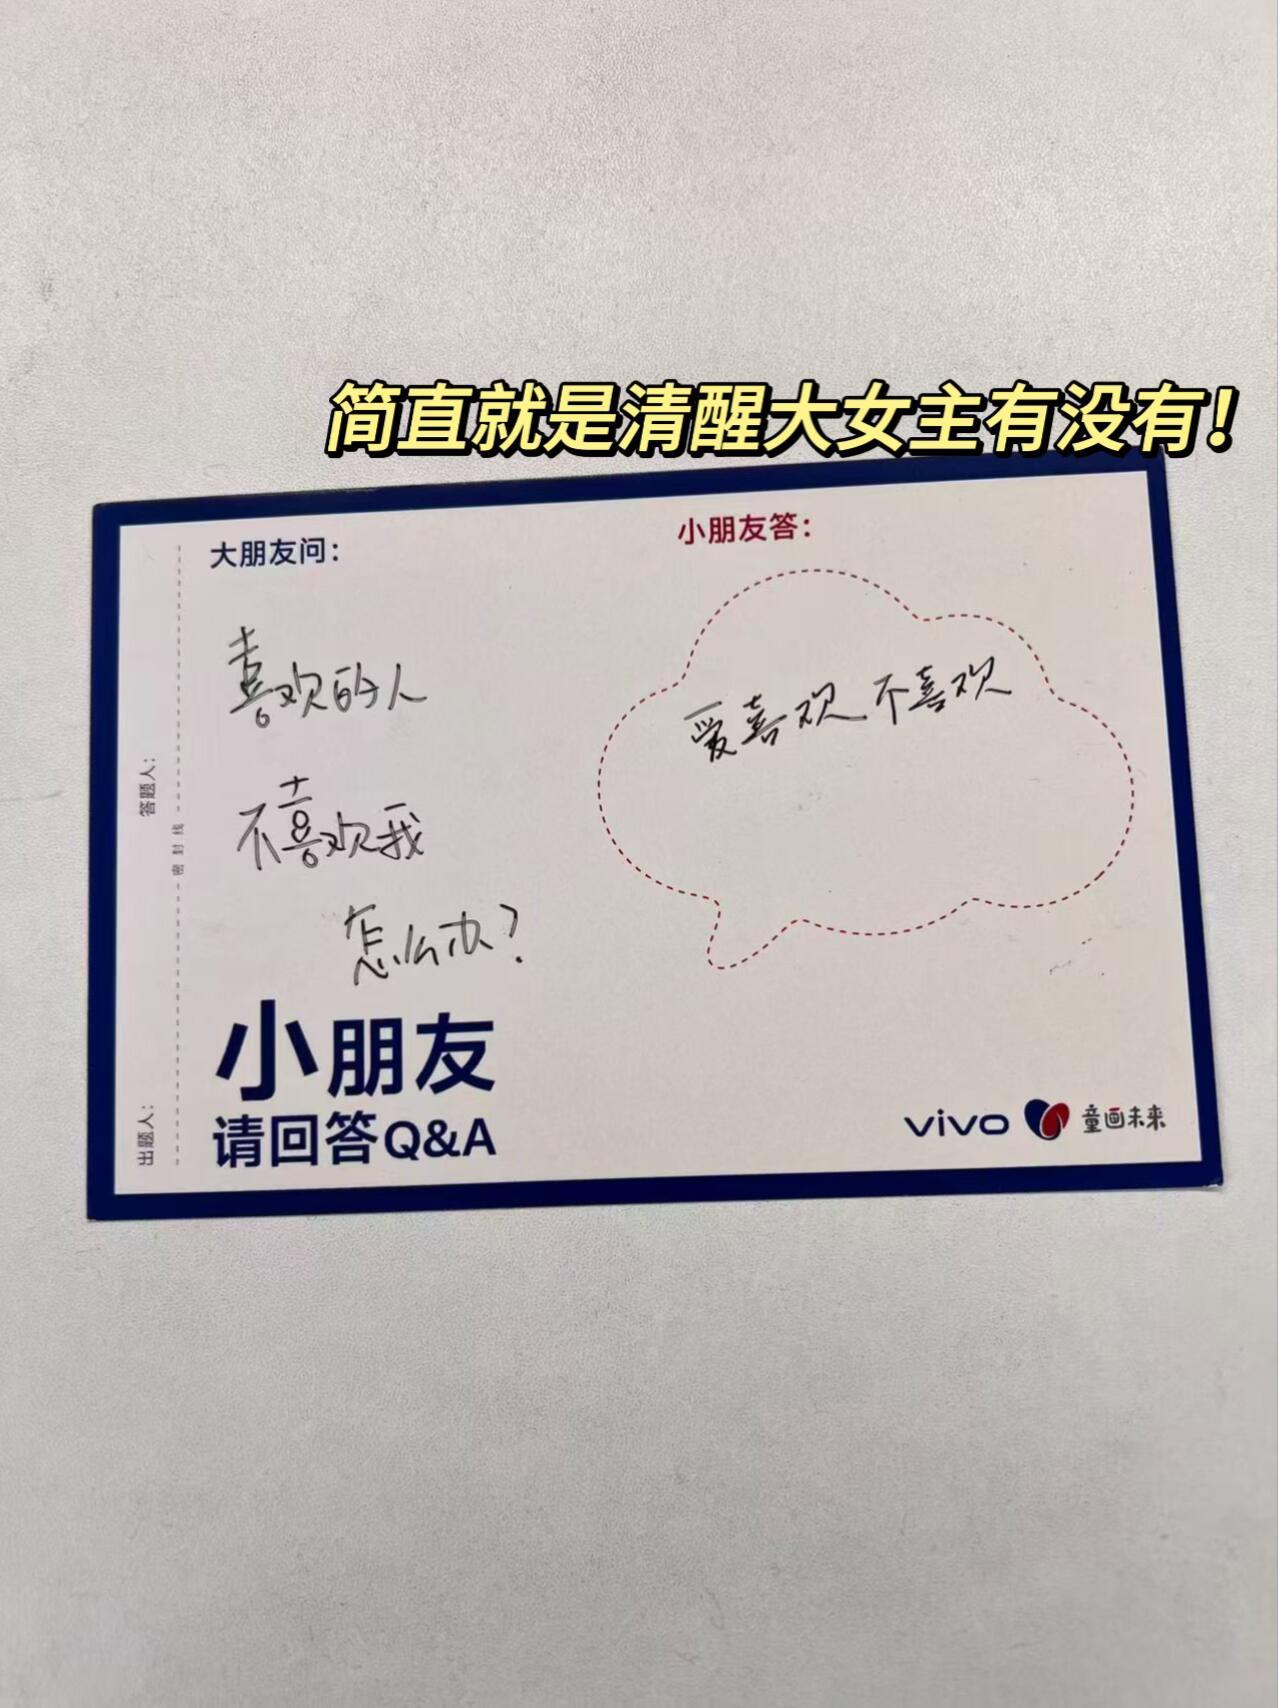 简直就是清醒大女主有没有！
大朋友问：
喜欢的人
不喜欢我
怎么办？
小朋友答：
爱喜欢不喜欢
答题人：
密封线
出题人：
小朋友
请回答Q&A
vivo 童画未来